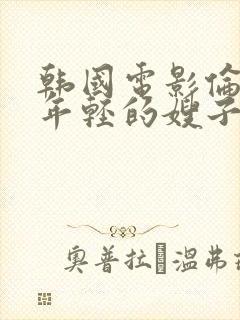 韩国电影倫
年轻的嫂子
奥普拉·温弗